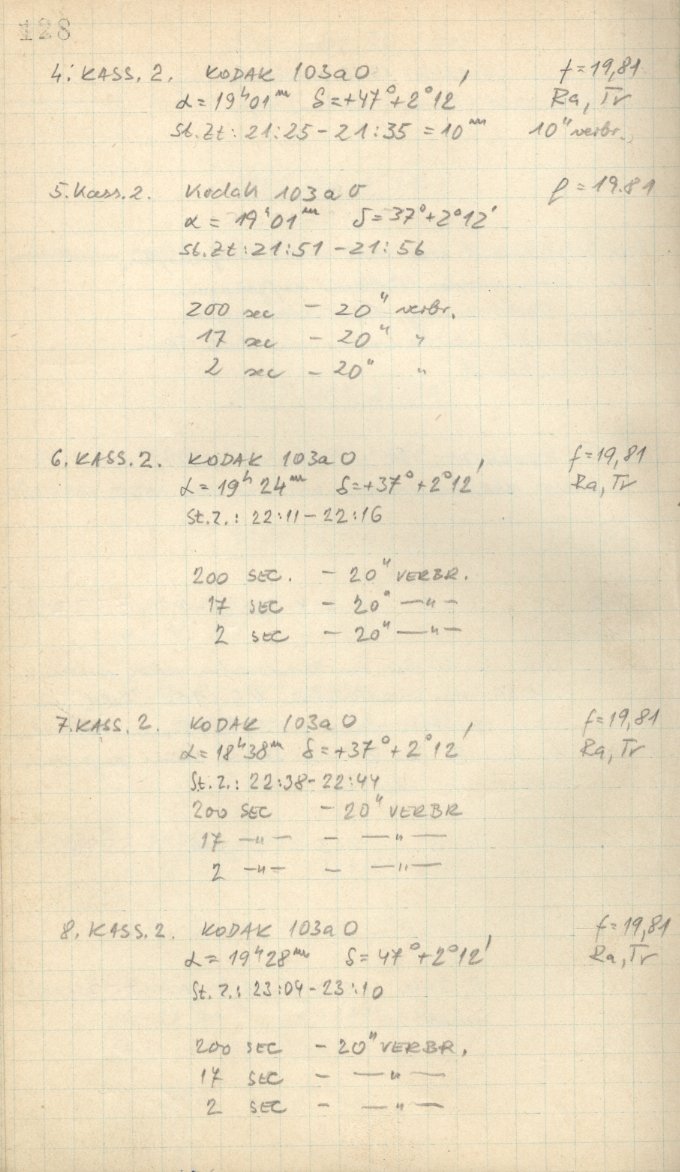 128
4. KASS. 2. KODAK 103a O f = 19,81
α = 19ʰ01ᵐ δ = +47° + 2°12' Ra, Tr
St. Zt: 21:25 - 21:35 = 10ᵐ 10" verbr.
5. Kass. 2. Kodak 103 a O f = 19.81
α = 19ʰ01ᵐ δ = 37° + 2°12'
St. Zt: 21:51 - 21:56
200 sec - 20" verbr.
17 sec - 20" "
2 sec - 20" "
6. KASS. 2. KODAK 103a O f = 19,81
α = 19ʰ24ᵐ δ = +37° + 2°12' Ra, Tr
St. Z.: 22:11 - 22:16
200 SEC. - 20" VERBR.
17 SEC - 20" —"—
2 SEC - 20" —"—
7. KASS. 2. KODAK 103a O f = 19,81
α = 18ʰ38ᵐ δ = +37° + 2°12' Ra, Tr
St. Z.: 22:38 - 22:44
200 SEC - 20" VERBR
17 —"— - —"—
2 —"— - —"—
8. KASS. 2. KODAK 103a O f = 19,81
α = 19ʰ28ᵐ δ = 47° + 2°12' Ra, Tr
St. Z.: 23:04 - 23:10
200 SEC - 20" VERBR.
17 SEC - —"—
2 SEC - —"—